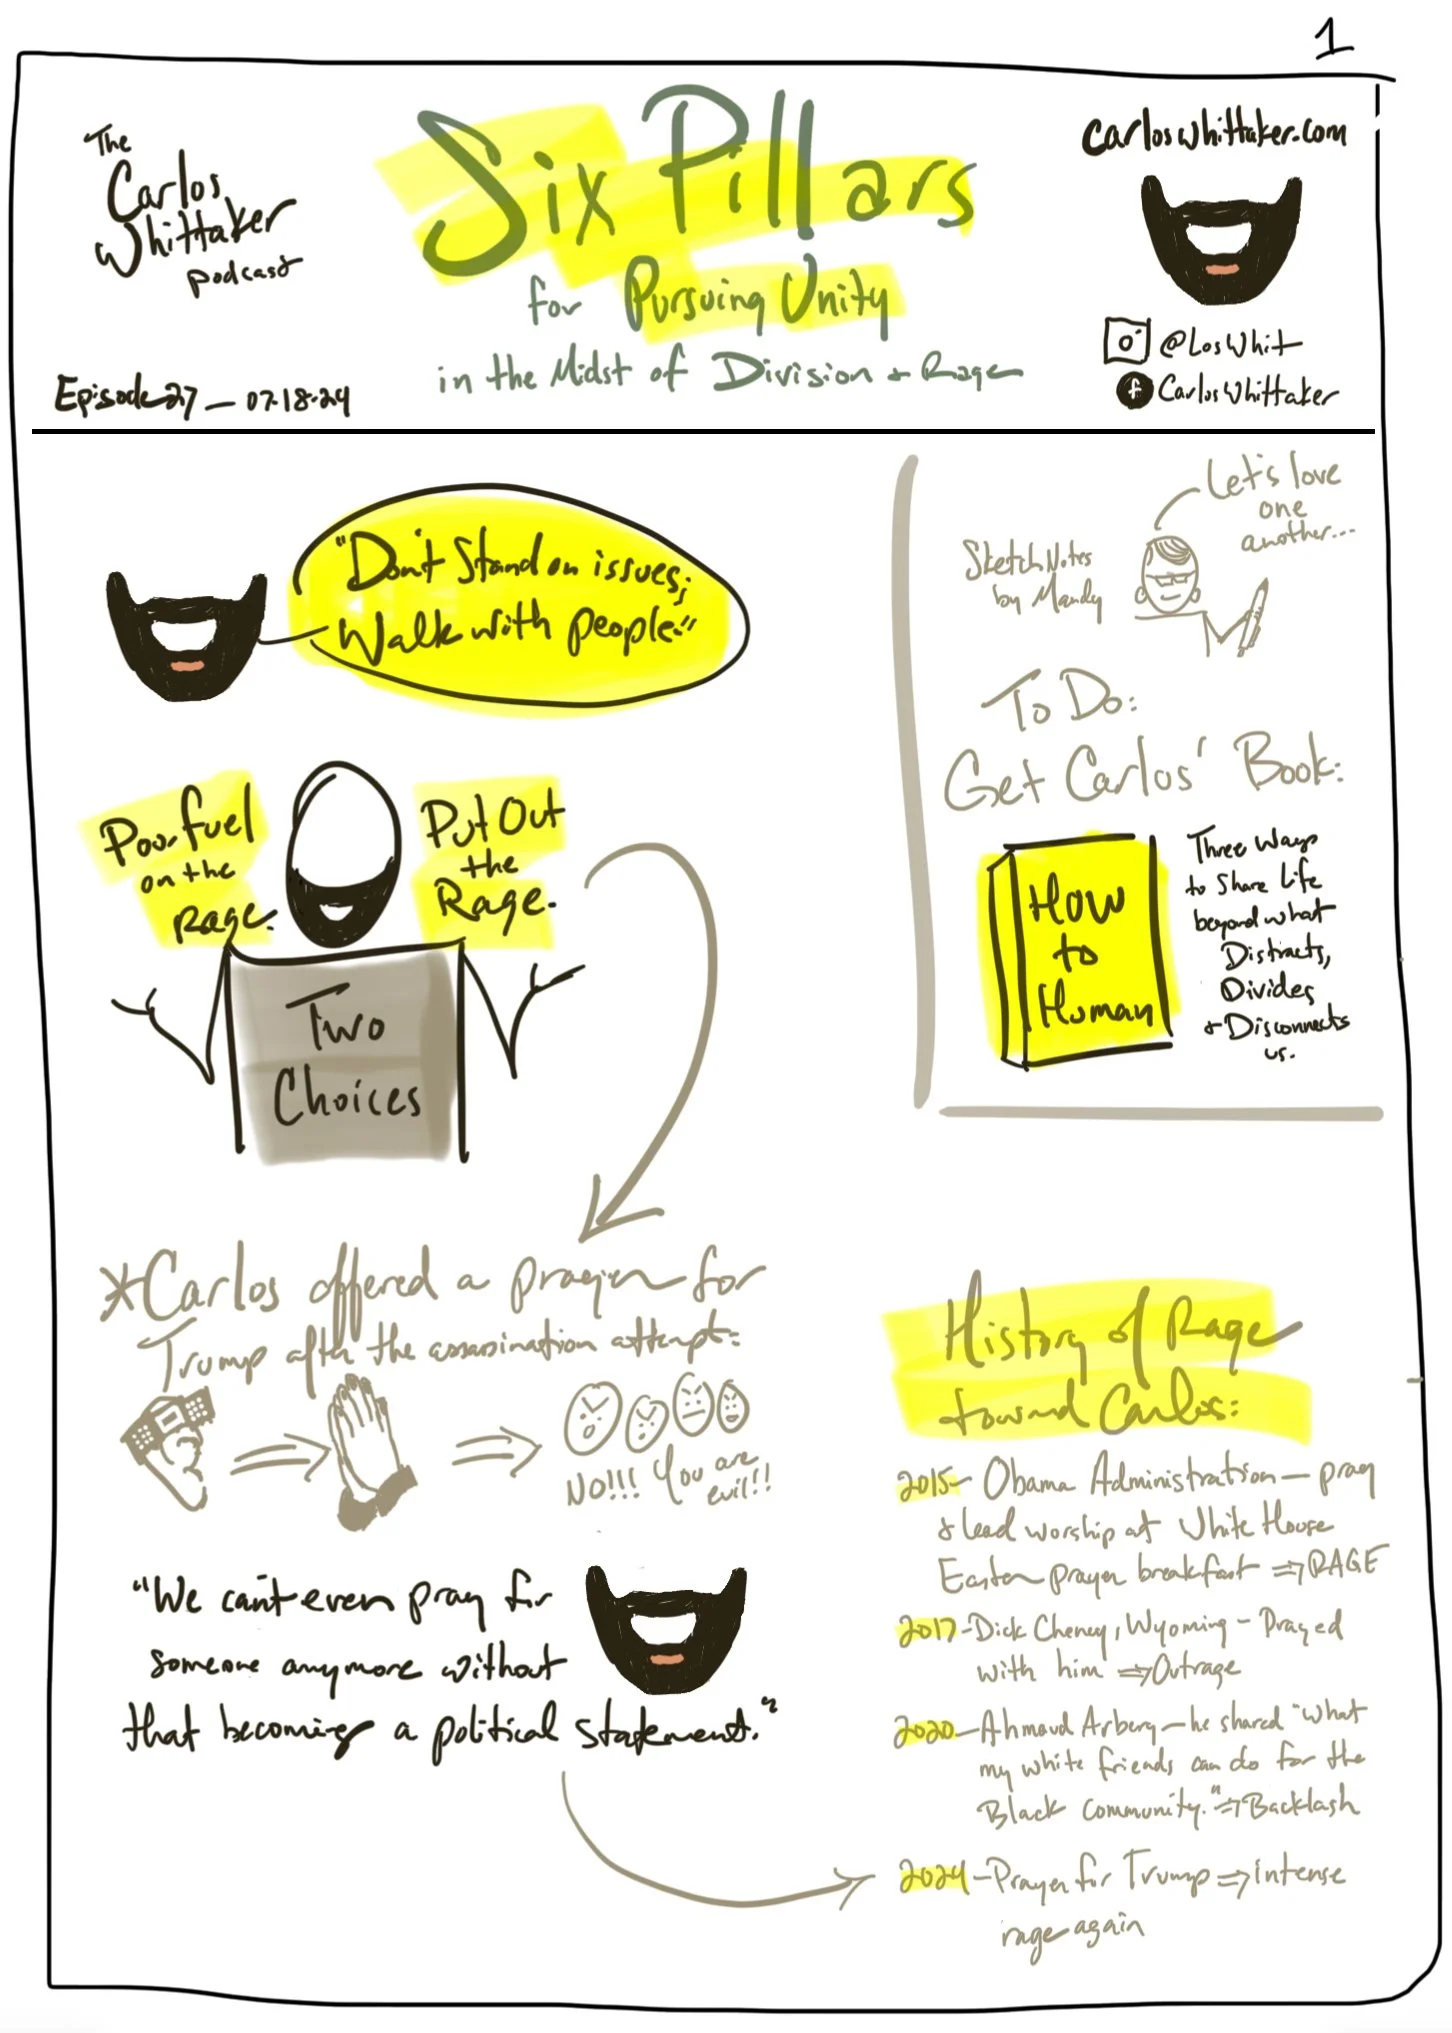 1
The
Carlos
Whittaker
podcast
Episode 27 — 07.18.24
Six Pillars
for Pursuing Unity
in the Midst of Division + Rage
carloswhittaker.com
@LosWhit
f CarlosWhittaker
"Don't Stand on issues;
Walk with people."
Let's love
one
another...
SketchNotes
by Mandy
To Do:
Get Carlos' Book:
How
to
Human
Three Ways
to Share Life
beyond what
Distracts,
Divides
+ Disconnects
us.
Pour fuel
on the
rage.
Put Out
the
Rage.
Two
Choices
*Carlos offered a prayer for
Trump after the assasination attempt:
NO!!! You are
evil!!
"We can't even pray for
someone anymore without
that becoming a political statement."
History of Rage
toward Carlos:
2015- Obama Administration — pray
+ lead worship at White House
Easter prayer breakfast ⇒ RAGE
2017- Dick Cheney, Wyoming - Prayed
with him ⇒ Outrage
2020- Ahmaud Arbery - he shared "what
my white friends can do for the
Black Community." ⇒ Backlash
2024 - Prayer for Trump ⇒ intense
rage again